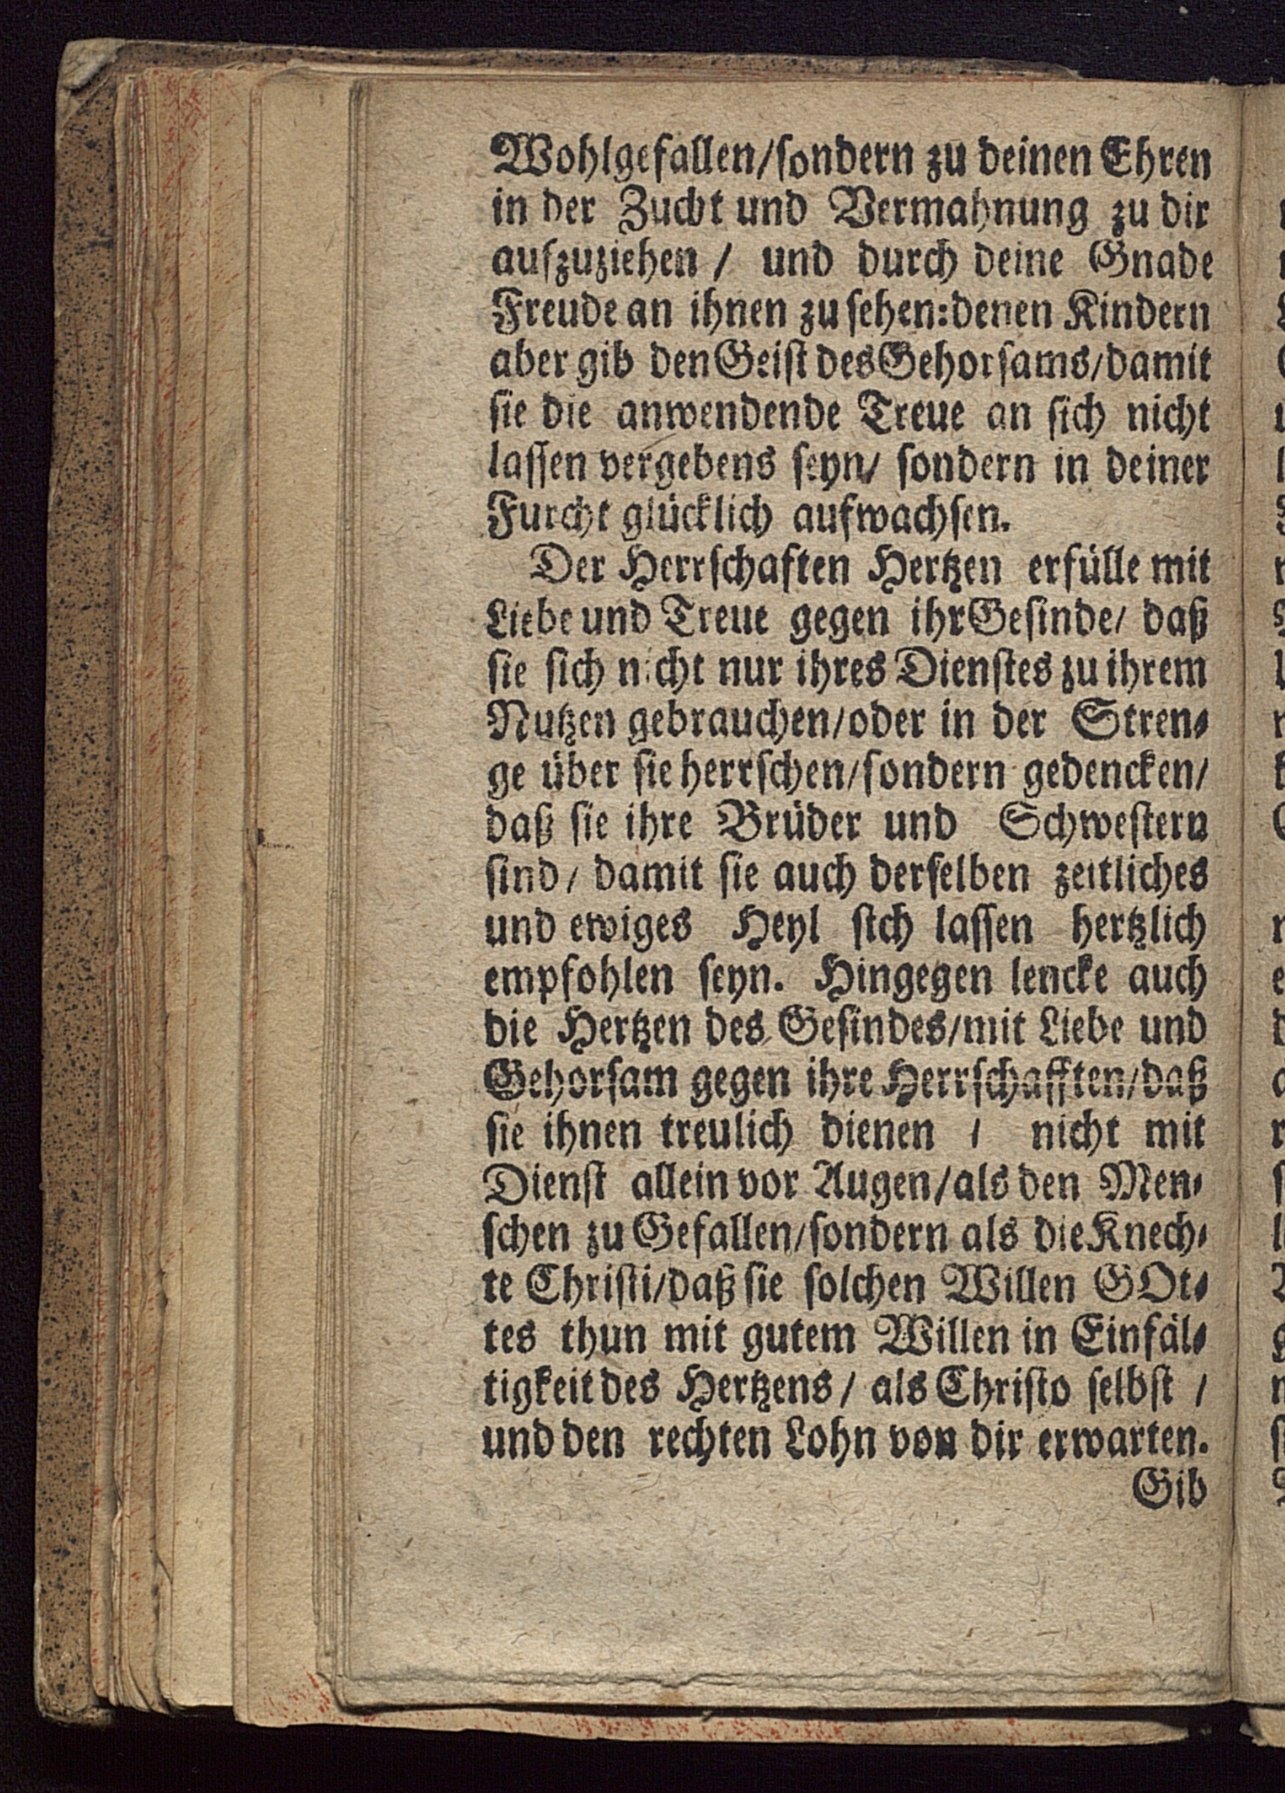 Wohlgefallen/sondern zu deinen Ehren
in der Zucht und Vermahnung zu dir
aufzuziehen / und durch deine Gnade
Freude an ihnen zu sehen: denen Kindern
aber gib den Geist des Gehorsams/damit
sie die anwendende Treue an sich nicht
lassen vergebens seyn/ sondern in deiner
Furcht glücklich aufwachsen.
Der Herrschaften Hertzen erfülle mit
Liebe und Treue gegen ihr Gesinde/ daß
sie sich nicht nur ihres Dienstes zu ihrem
Nutzen gebrauchen/oder in der Stren-
ge über sie herrschen/sondern gedencken/
daß sie ihre Brüder und Schwestern
sind/ damit sie auch derselben zeitliches
und ewiges Heyl sich lassen hertzlich
empfohlen seyn. Hingegen lencke auch
die Hertzen des Gesindes/mit Liebe und
Gehorsam gegen ihre Herrschafften/daß
sie ihnen treulich dienen / nicht mit
Dienst allein vor Augen/als den Men-
schen zu Gefallen/sondern als die Knech-
te Christi/daß sie solchen Willen GOt-
tes thun mit gutem Willen in Einfäl-
tigkeit des Hertzens/ als Christo selbst /
und den rechten Lohn von dir erwarten.
Gib